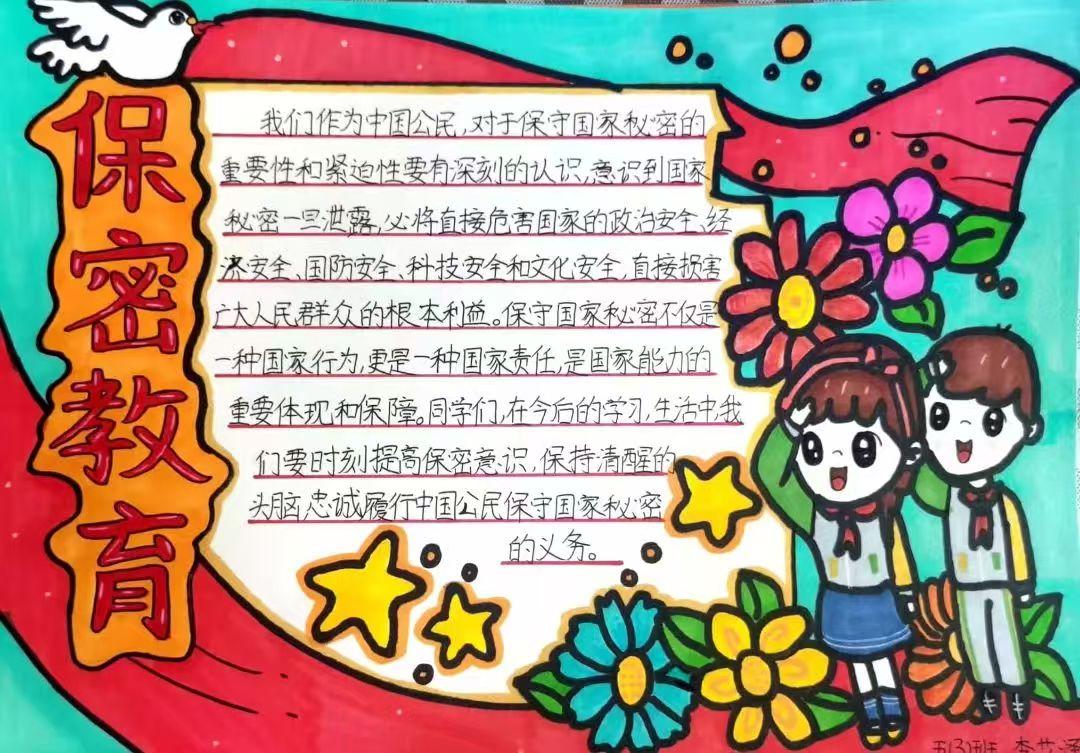 保密教育
我们作为中国公民,对于保守国家秘密的
重要性和紧迫性要有深刻的认识,意识到国家
秘密一旦泄露,必将直接危害国家的政治安全、经
济安全、国防安全、科技安全和文化安全,直接损害
广大人民群众的根本利益。保守国家秘密不仅是
一种国家行为,更是一种国家责任,是国家能力的
重要体现和保障。同学们,在今后的学习、生活中,我
们要时刻提高保密意识,保持清醒的
头脑,忠诚履行中国公民保守国家秘密
的义务。
五(3)班 李